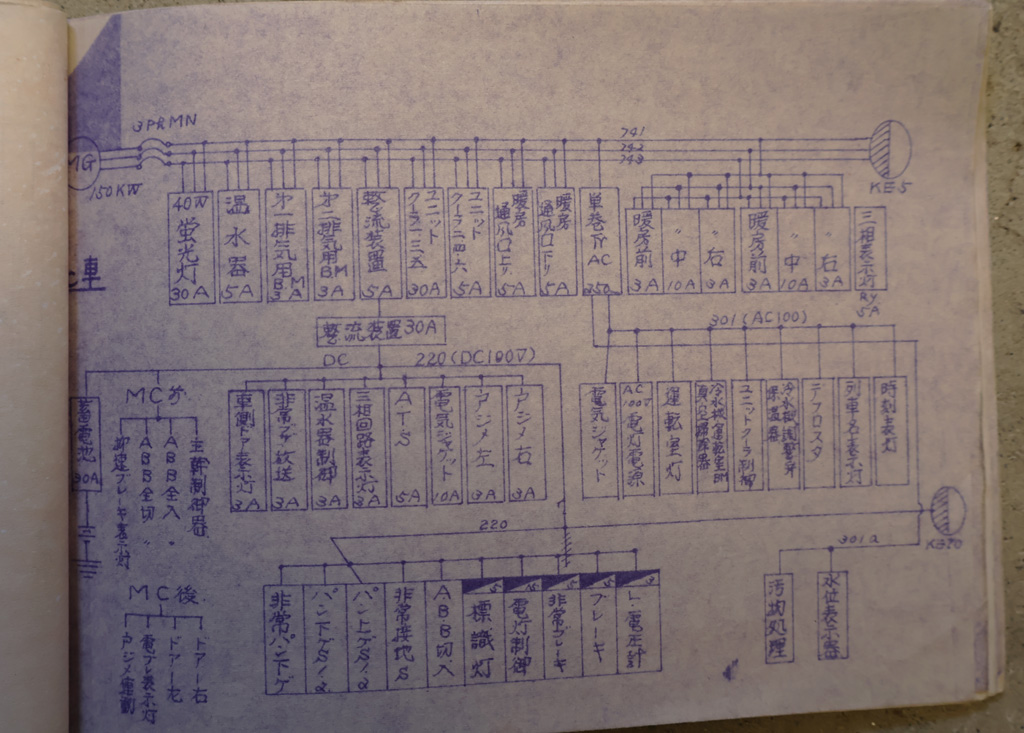 3PRMN
MG
150KW
741
742
743
KE5
40W 蛍光灯 30A
温水器 5A
第一排気用B.M 3A
第二排気用B.M 3A
整流装置 5A
ユニットクーラ一三五 30A
ユニットクーラ二四六 5A
暖房通風口上り 5A
暖房通風口下り 5A
単巻Tr AC 250
暖房前 3A
〃中 10A
〃右 3A
暖房前 3A
〃中 10A
〃右 3A
三相表示灯Ry 5A
車
整流装置30A
301(AC100)
DC
220(DC100V)
蓄電池 30A
MC前
卸建ブレーキ表示灯
ABB全切〃
ABB全入〃
主幹制御器
車側ドア表示灯 3A
非常ブザ放送 3A
温水器制御 3A
三相回路表示灯 3A
ATS 5A
電気ジャケット 10A
戸ジメ左 3A
戸ジメ右 3A
電気ジャケット
AC100V電灯電源
運転室灯
ユニットクーラ制御
デフロスタ
列車名表示灯
時刻表灯
220
KE70
301a
汚物処理
水位表示器
MC後
戸ジメ電動
電ブレ表示灯
ドアー左
ドアー右
非常パン下ゲ
パン下ゲS1.2
パン上ゲS1.2
非常接地S
ABB切入
5 標識灯
15 電灯制御
5 非常ブレーキ
5 ブレーキ
3 L.電圧計